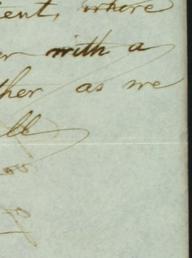 ient, where
er with a
ther as we
ll